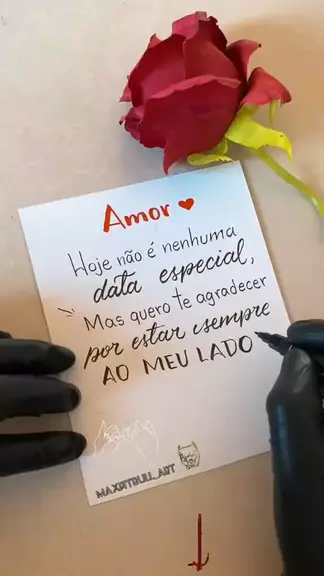 Amor ❤
Hoje não é nenhuma
data especial,
Mas quero te agradecer
por estar sempre
AO MEU LADO
MAXPITBULL_ART